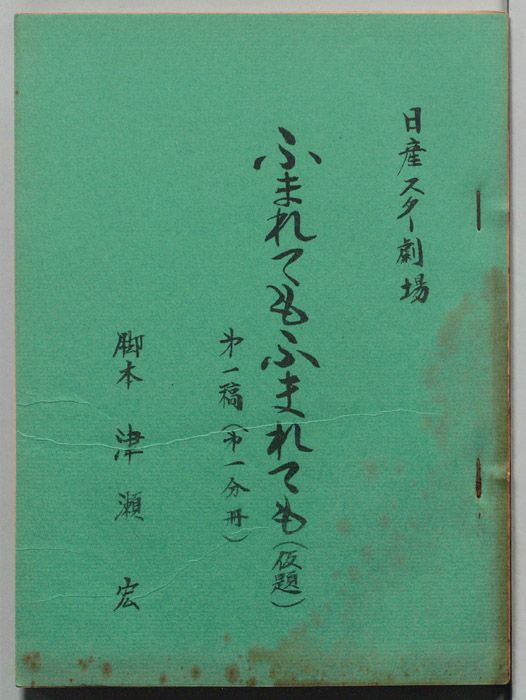 日産スター劇場
ふまれてもふまれても(仮題)
第一稿(第一分冊)
脚本 津瀬宏